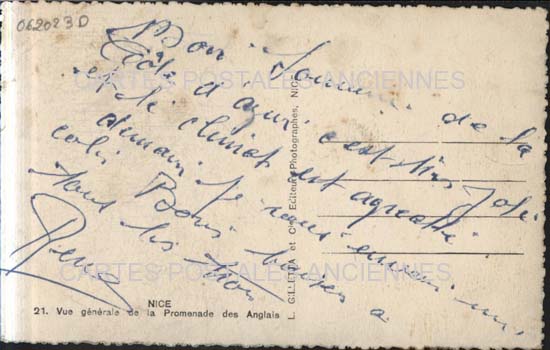 062023D
Bon Souvenir de la
Côte d'azur c'est très joli
et le climat est agréable
demain je vous envoie un
colis Bons baisers a
tous les trois
René
CARTES POSTALES ANCIENNES
CARTES POSTALES ANCIENNES
NICE
21. Vue générale de la Promenade des Anglais
L. GILLETTA et Cie, Editeurs-Photographes, NICE